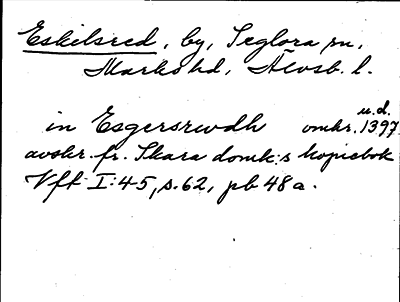 Eskilsred, by, Seglora sn,
Marks hd, Älvsb. l.
u.d.
in Esgersrwdh omkr. 1397
avskr. fr. Skara domk:s kopiebok
Vft I:4-5, s. 62, pb 48a.